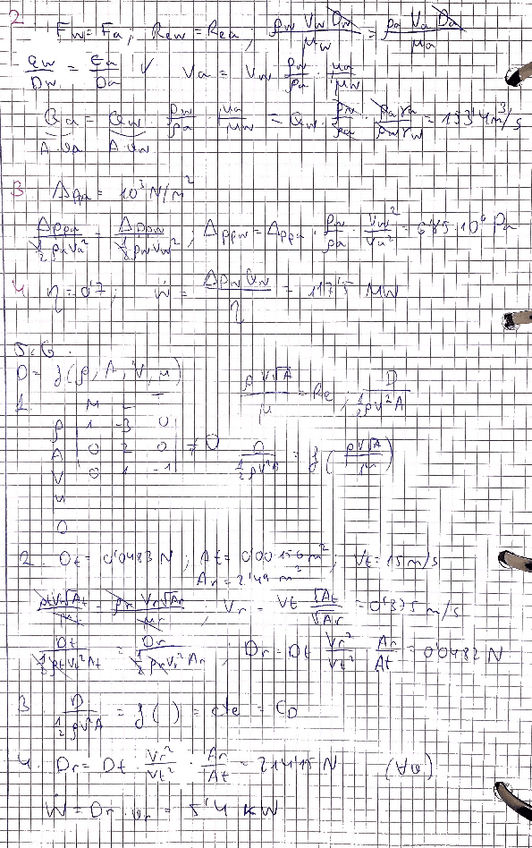 2
Fw = Fa ; Rew = Rea ; ρw Vw Dw / μw = ρa Va Da / μa
εw/Dw = εa/Da √ Va = Vw ρw/ρa · μa/μw
Qa = Qw ρw/ρa · μa/μw = Qw · ρw/ρa · ρa νa/ρw νw = 153'4 m³/s
A·va A·vw
3 Δppa = 10³ N/m²
Δppa / ½ρaVa² = Δppw / ½ρwVw² ; Δppw = Δppa · ρw/ρa · Vw²/Va² =
4 η = 0'7 ; Ẇ = Δpw Qw / η = 117'5 MW
5.6.
D = f(ρ, A, V, μ) ρV√A / μ = Re , D / ½ρV²A
1. M L T
ρ 1 -3 0
A 0 2 0 ≠ 0 D / ½ρV²A = f(ρV√A / μ)
V 0 1 -1
μ
D
2. Dt = 0'0483 N ; At = 0'00156 m² ; Vt = 15 m/s
Ar = 2'49 m²
ρtVt√At / μt = ρrVr√Ar / μr , Vr = Vt √At / √Ar = 0'375 m/s
Dt / ½ρtVt²At = Dr / ½ρrVr²Ar ; Dr = Dt Vr²/Vt² Ar/At = 0'0482 N
3 D / ½ρV²A = f( ) = cte = CD
4. Dr = Dt · Vr²/Vt² · Ar/At = N
Ẇ = Dr · vr = 5'4 kW